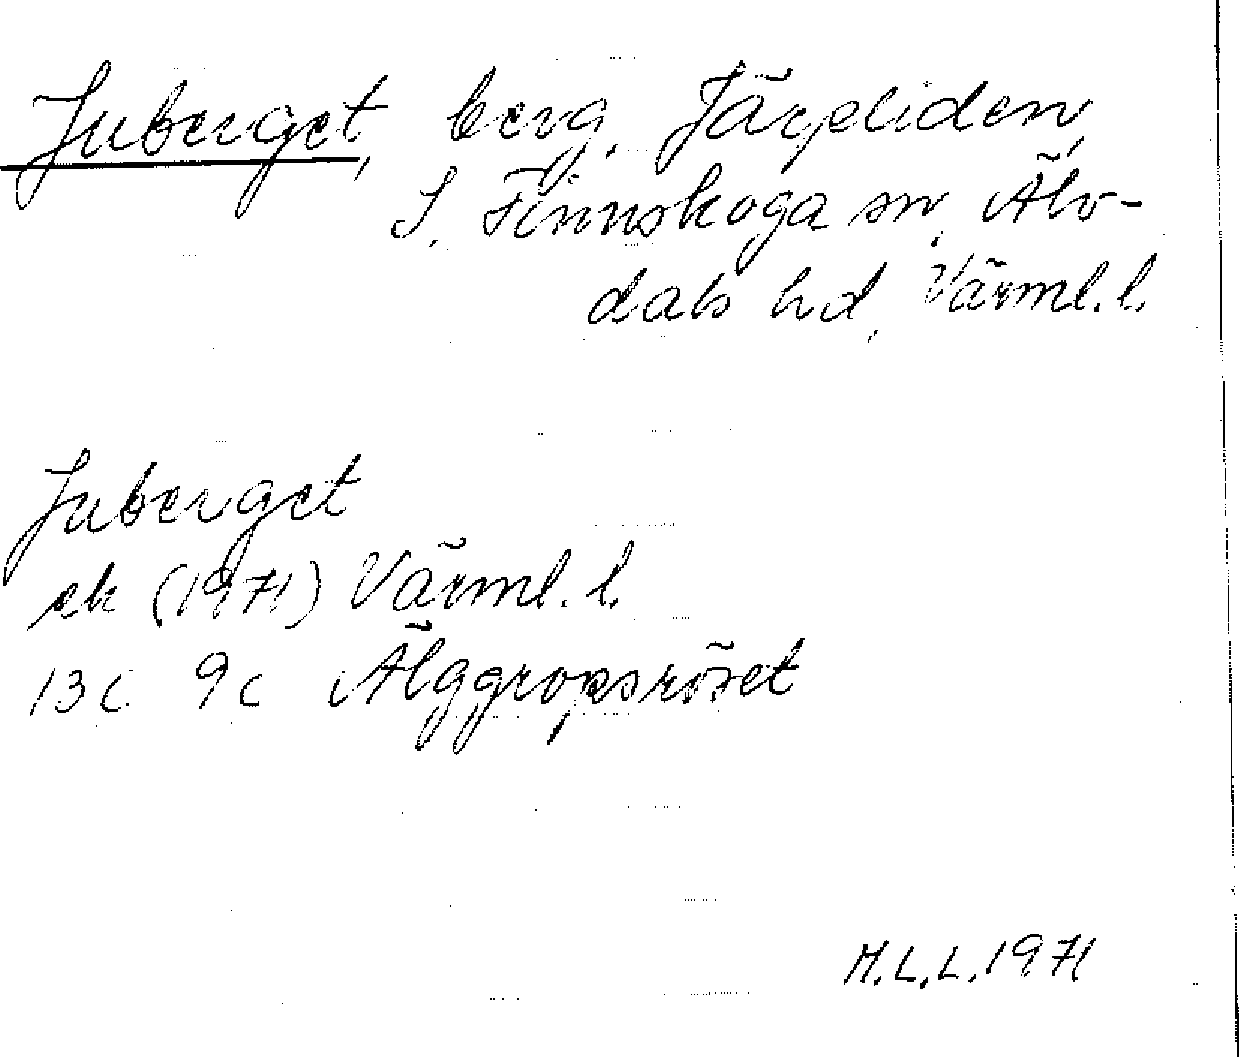 Juberget, berg, Järpliden,
S. Finnskoga sn, Älv-
dals hd, Värml. l.
Juberget
ek (1971) Värml. l.
13c 9c Älggropsröset
M.L.L. 1971